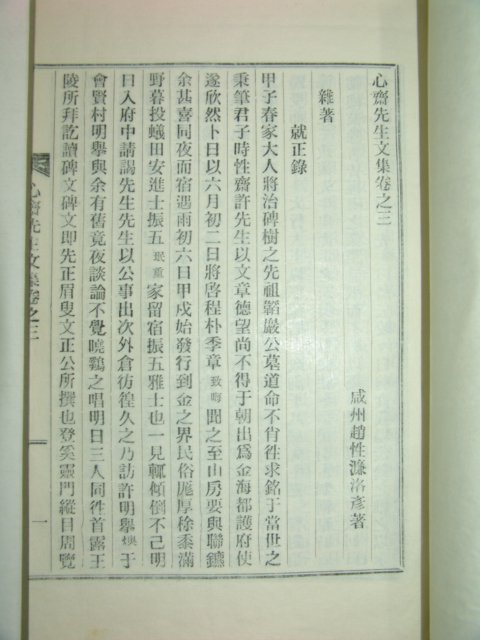 心齋先生文集卷之三
咸州趙性濂洛彥著
雜著
就正錄
甲子春家大人將治碑樹之先祖韜巖公墓道命不肖徃求銘于當世之
秉筆君子時性齋許先生以文章德望尚不得于朝出爲金海都護府使
遂欣然卜日以六月初二日將啓程朴季章致晦聞之至山房要與聯鑣
余甚喜同夜而宿遇雨初六日甲戌始發行到金之界民俗厖厚稌黍滿
野暮投蟻田安進士振五珉重家留宿振五雅士也一見輒傾倒不已明
日入府中請謁先生先生以公事出次外倉彷徨久之乃訪許明擧煥于
會賢村明擧與余有舊竟夜談論不覺曉鷄之唱明日三人同徃首露王
陵所拜訖讀碑文碑文即先正眉叟文正公所撰也登箕靈門縱目周覽
心齋先生文集卷之三
一